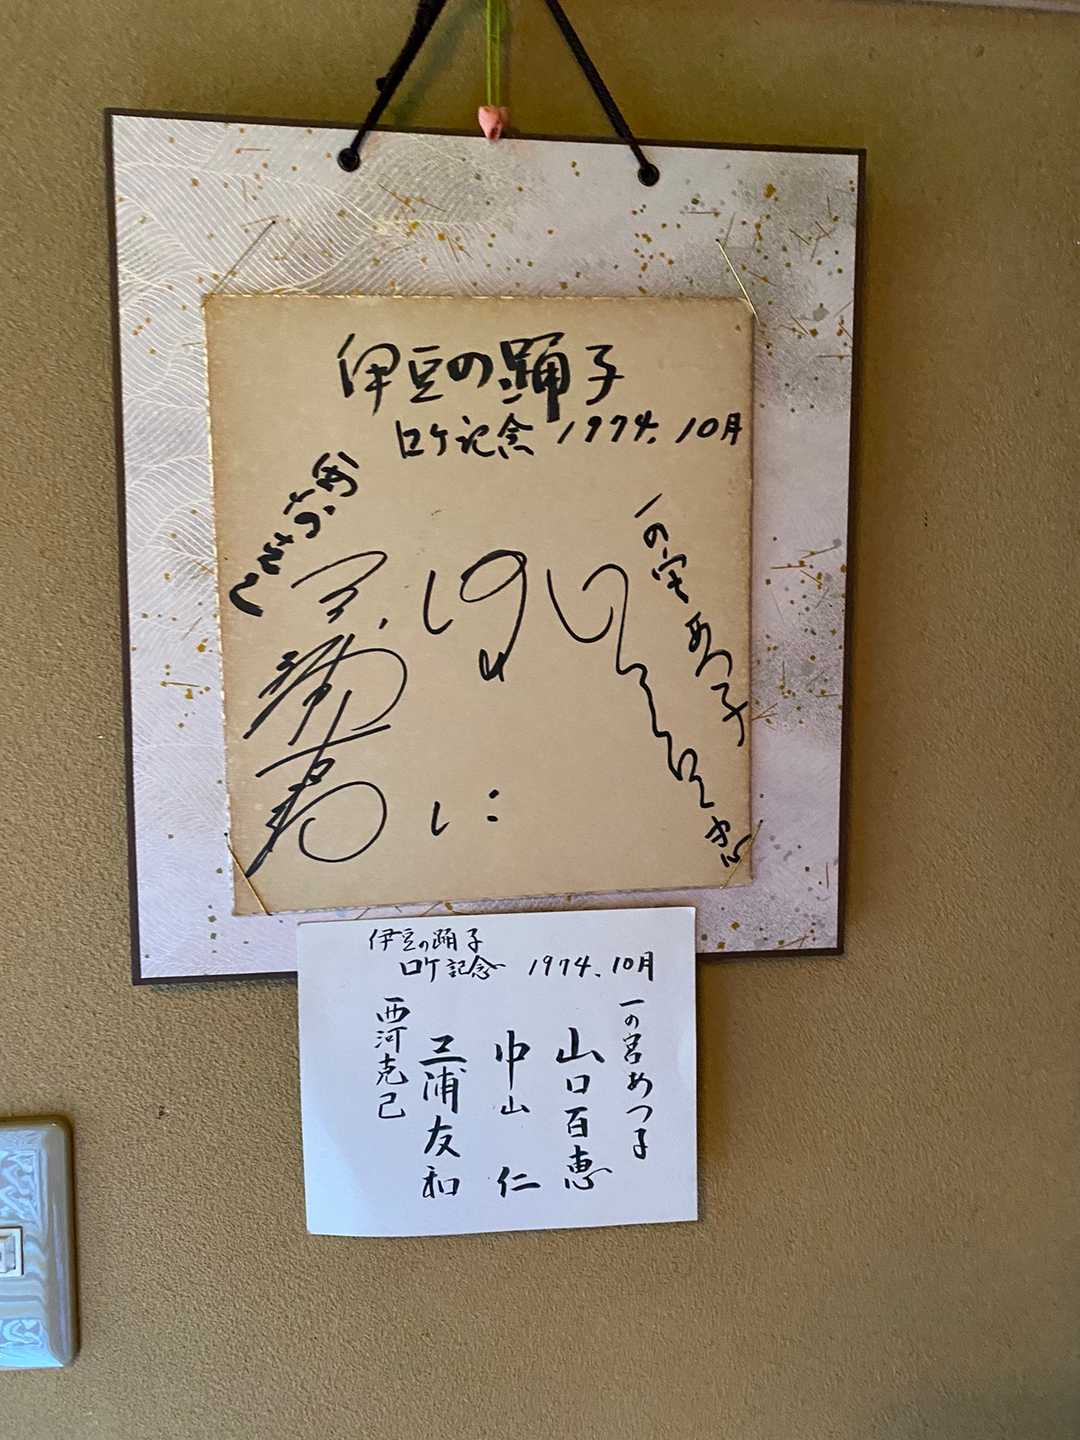 伊豆の踊子
ロケ記念 1974.10月
一の宮あつ子
伊豆の踊子
ロケ記念 1974.10月
一の宮あつ子
山口百恵
中山 仁
三浦友和
西河克己